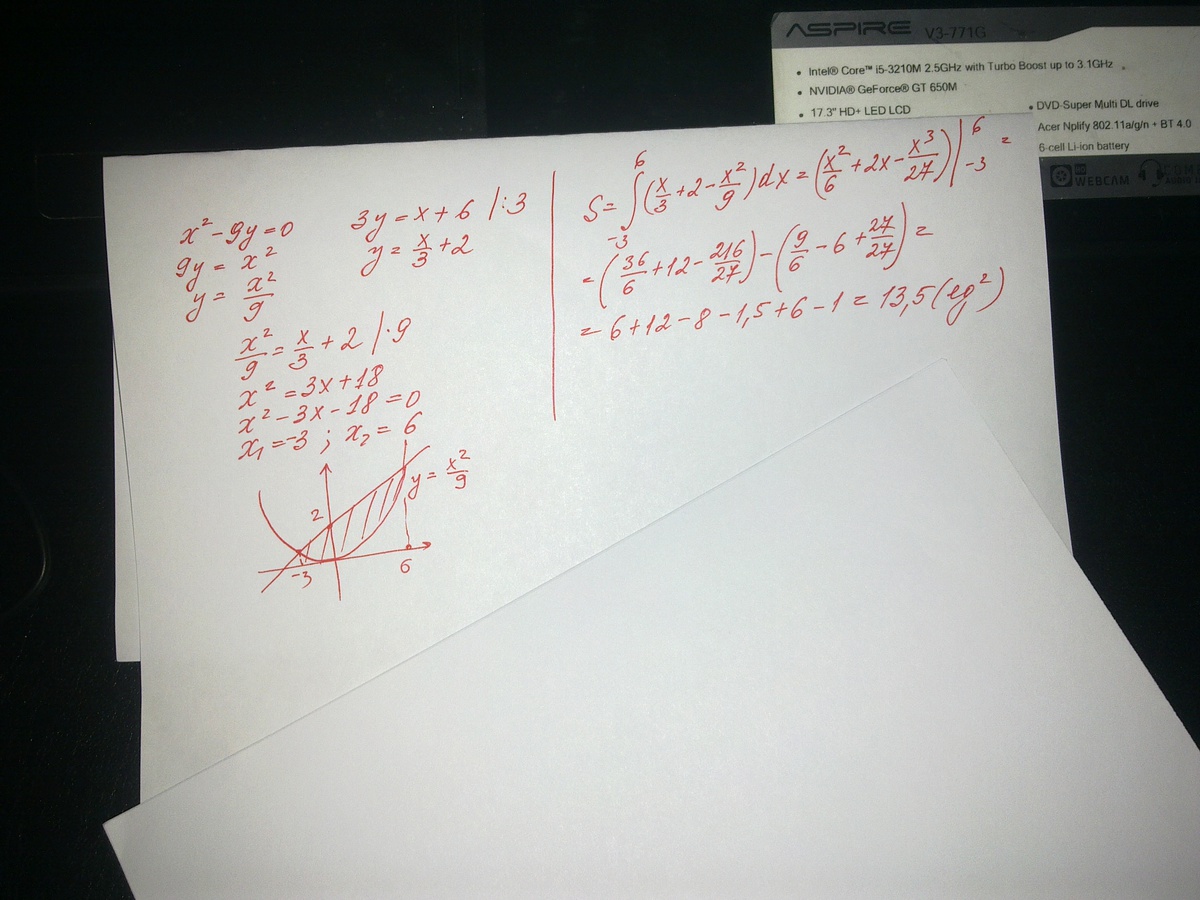 ASPIRE V3-771G
• Intel® Core™ i5-3210M 2.5GHz with Turbo Boost up to 3.1GHz
• NVIDIA® GeForce® GT 650M
• 17.3" HD+ LED LCD
• DVD-Super Multi DL drive
Acer Nplify 802.11a/g/n + BT 4.0
6-cell Li-ion battery
HD WEBCAM
x² - 9y = 0
9y = x²
y = x²/9
3y = x + 6 /:3
y = x/3 + 2
x²/9 = x/3 + 2 /·9
x² = 3x + 18
x² - 3x - 18 = 0
x₁ = -3 ; x₂ = 6
y = x²/9
2
-3
6
S = ∫₋₃⁶ (x/3 + 2 - x²/9) dx = (x²/6 + 2x - x³/27) |₋₃⁶ =
= (36/6 + 12 - 216/27) - (9/6 - 6 + 27/27) =
= 6 + 12 - 8 - 1,5 + 6 - 1 = 13,5 (eg²)